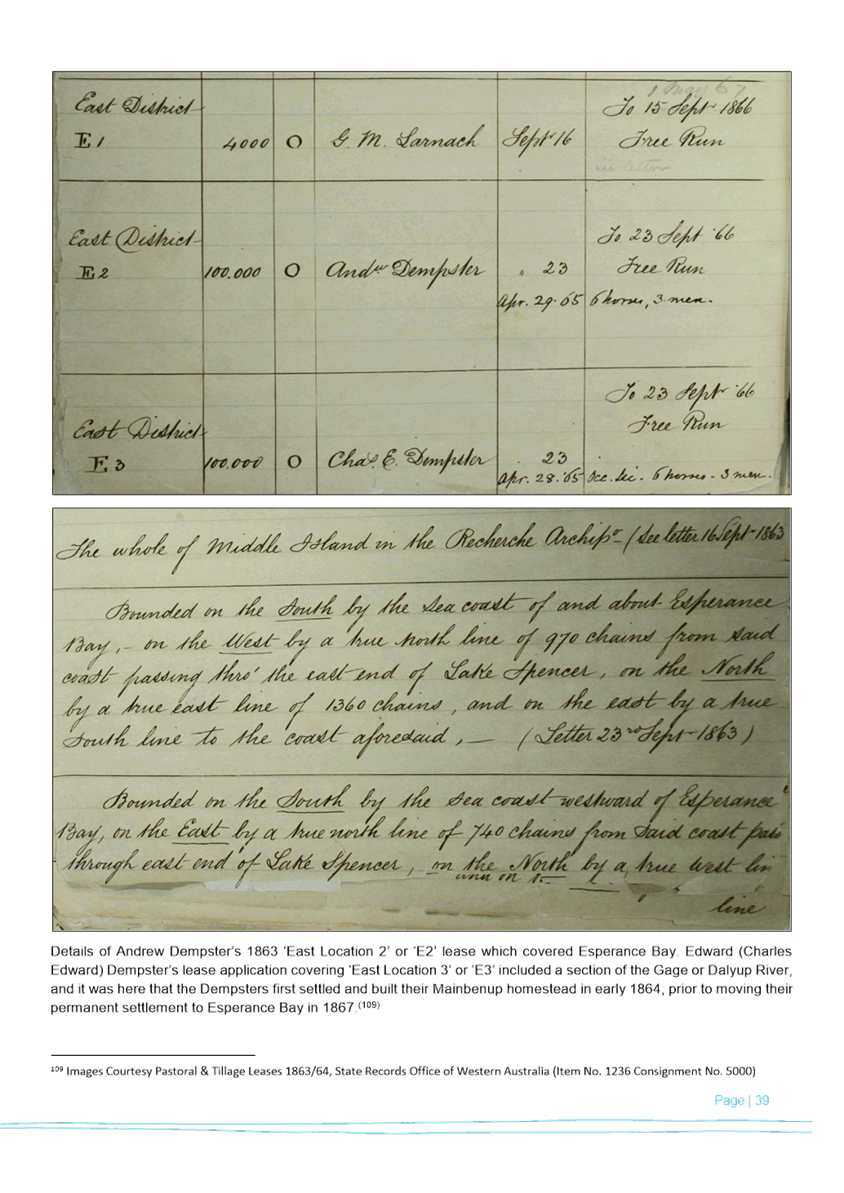 1 May 67
East District
To 15 Sept 1866
E 1 4000 O G. M. Larnach Sept 16 Free Run
See letter
East District
To 23 Sept '66
E 2 100.000 O Andw Dempster " 23 Free Run
Apr. 29. 65 6 horses, 3 men.
To 23 Sept '66
East District
Free Run
E 3 100.000 O Chas. E. Dempster 23
Apr. 28. '65 Occ. Lic. 6 horses - 3 men.
The whole of Middle Island in the Recherche Archipo - (See letter 16 Sept 1863
Bounded on the South by the Sea coast of and about Esperance
Bay, - on the West by a true north line of 970 chains from said
coast passing thro' the east end of Lake Spencer, on the North
by a true east line of 1360 chains, and on the east by a true
South line to the coast aforesaid, — (Letter 23rd Sept 1863)
Bounded on the South by the Sea coast westward of Esperance
Bay, on the East by a true north line of 740 chains from said coast pass
through east end of Lake Spencer, on the North by a true West lin
line
Details of Andrew Dempster's 1863 'East Location 2' or 'E2' lease which covered Esperance Bay. Edward (Charles
Edward) Dempster's lease application covering 'East Location 3' or 'E3' included a section of the Gage or Dalyup River,
and it was here that the Dempsters first settled and built their Mainbenup homestead in early 1864, prior to moving their
permanent settlement to Esperance Bay in 1867.(109)
109 Images Courtesy Pastoral & Tillage Leases 1863/64, State Records Office of Western Australia (Item No. 1236 Consignment No. 5000)
Page | 39